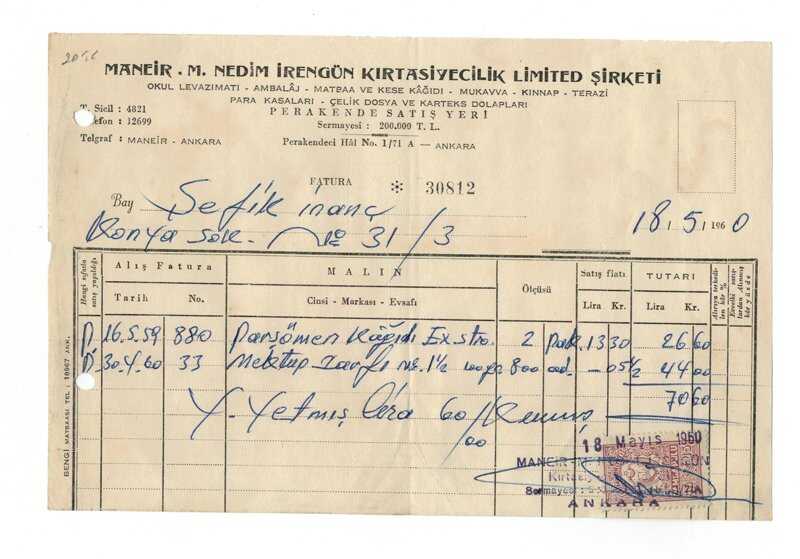 MANEİR . M. NEDİM İRENGÜN KIRTASİYECİLİK LİMİTED ŞİRKETİ
OKUL LEVAZIMATI - AMBALÂJ - MATBAA VE KESE KÂĞIDI - MUKAVVA - KINNAP - TERAZİ
PARA KASALARI - ÇELİK DOSYA VE KARTEKS DOLAPLARI
PERAKENDE SATIŞ YERİ
Sermayesi : 200.000 T. L.
T. Sicil : 4821
Telefon : 12699
Telgraf : MANEİR - ANKARA
Perakendeci Hâl No. 1/71 A — ANKARA
FATURA ※ 30812
Bay Şefik inanç
Konya sok. No 31/3
18/5/1960
Alış Fatura MALIN Ölçüsü Satış fiatı TUTARI
Tarih No. Cinsi - Markası - Evsafı Lira Kr. Lira Kr.
P. 16.5.59 880 Parşömen Kâğıdı Ex.stra. 2 pak. 13 30 26 60
P. 30.4.60 33 Mektup Zarfı No. 1½ 800 ad. - 05½ 44 00
70 60
Y. Yetmiş lira 60/00 Kuruş
18 Mayıs 1960
ANKARA
BENGİ MATBAASI TEL : 18967 ANK.